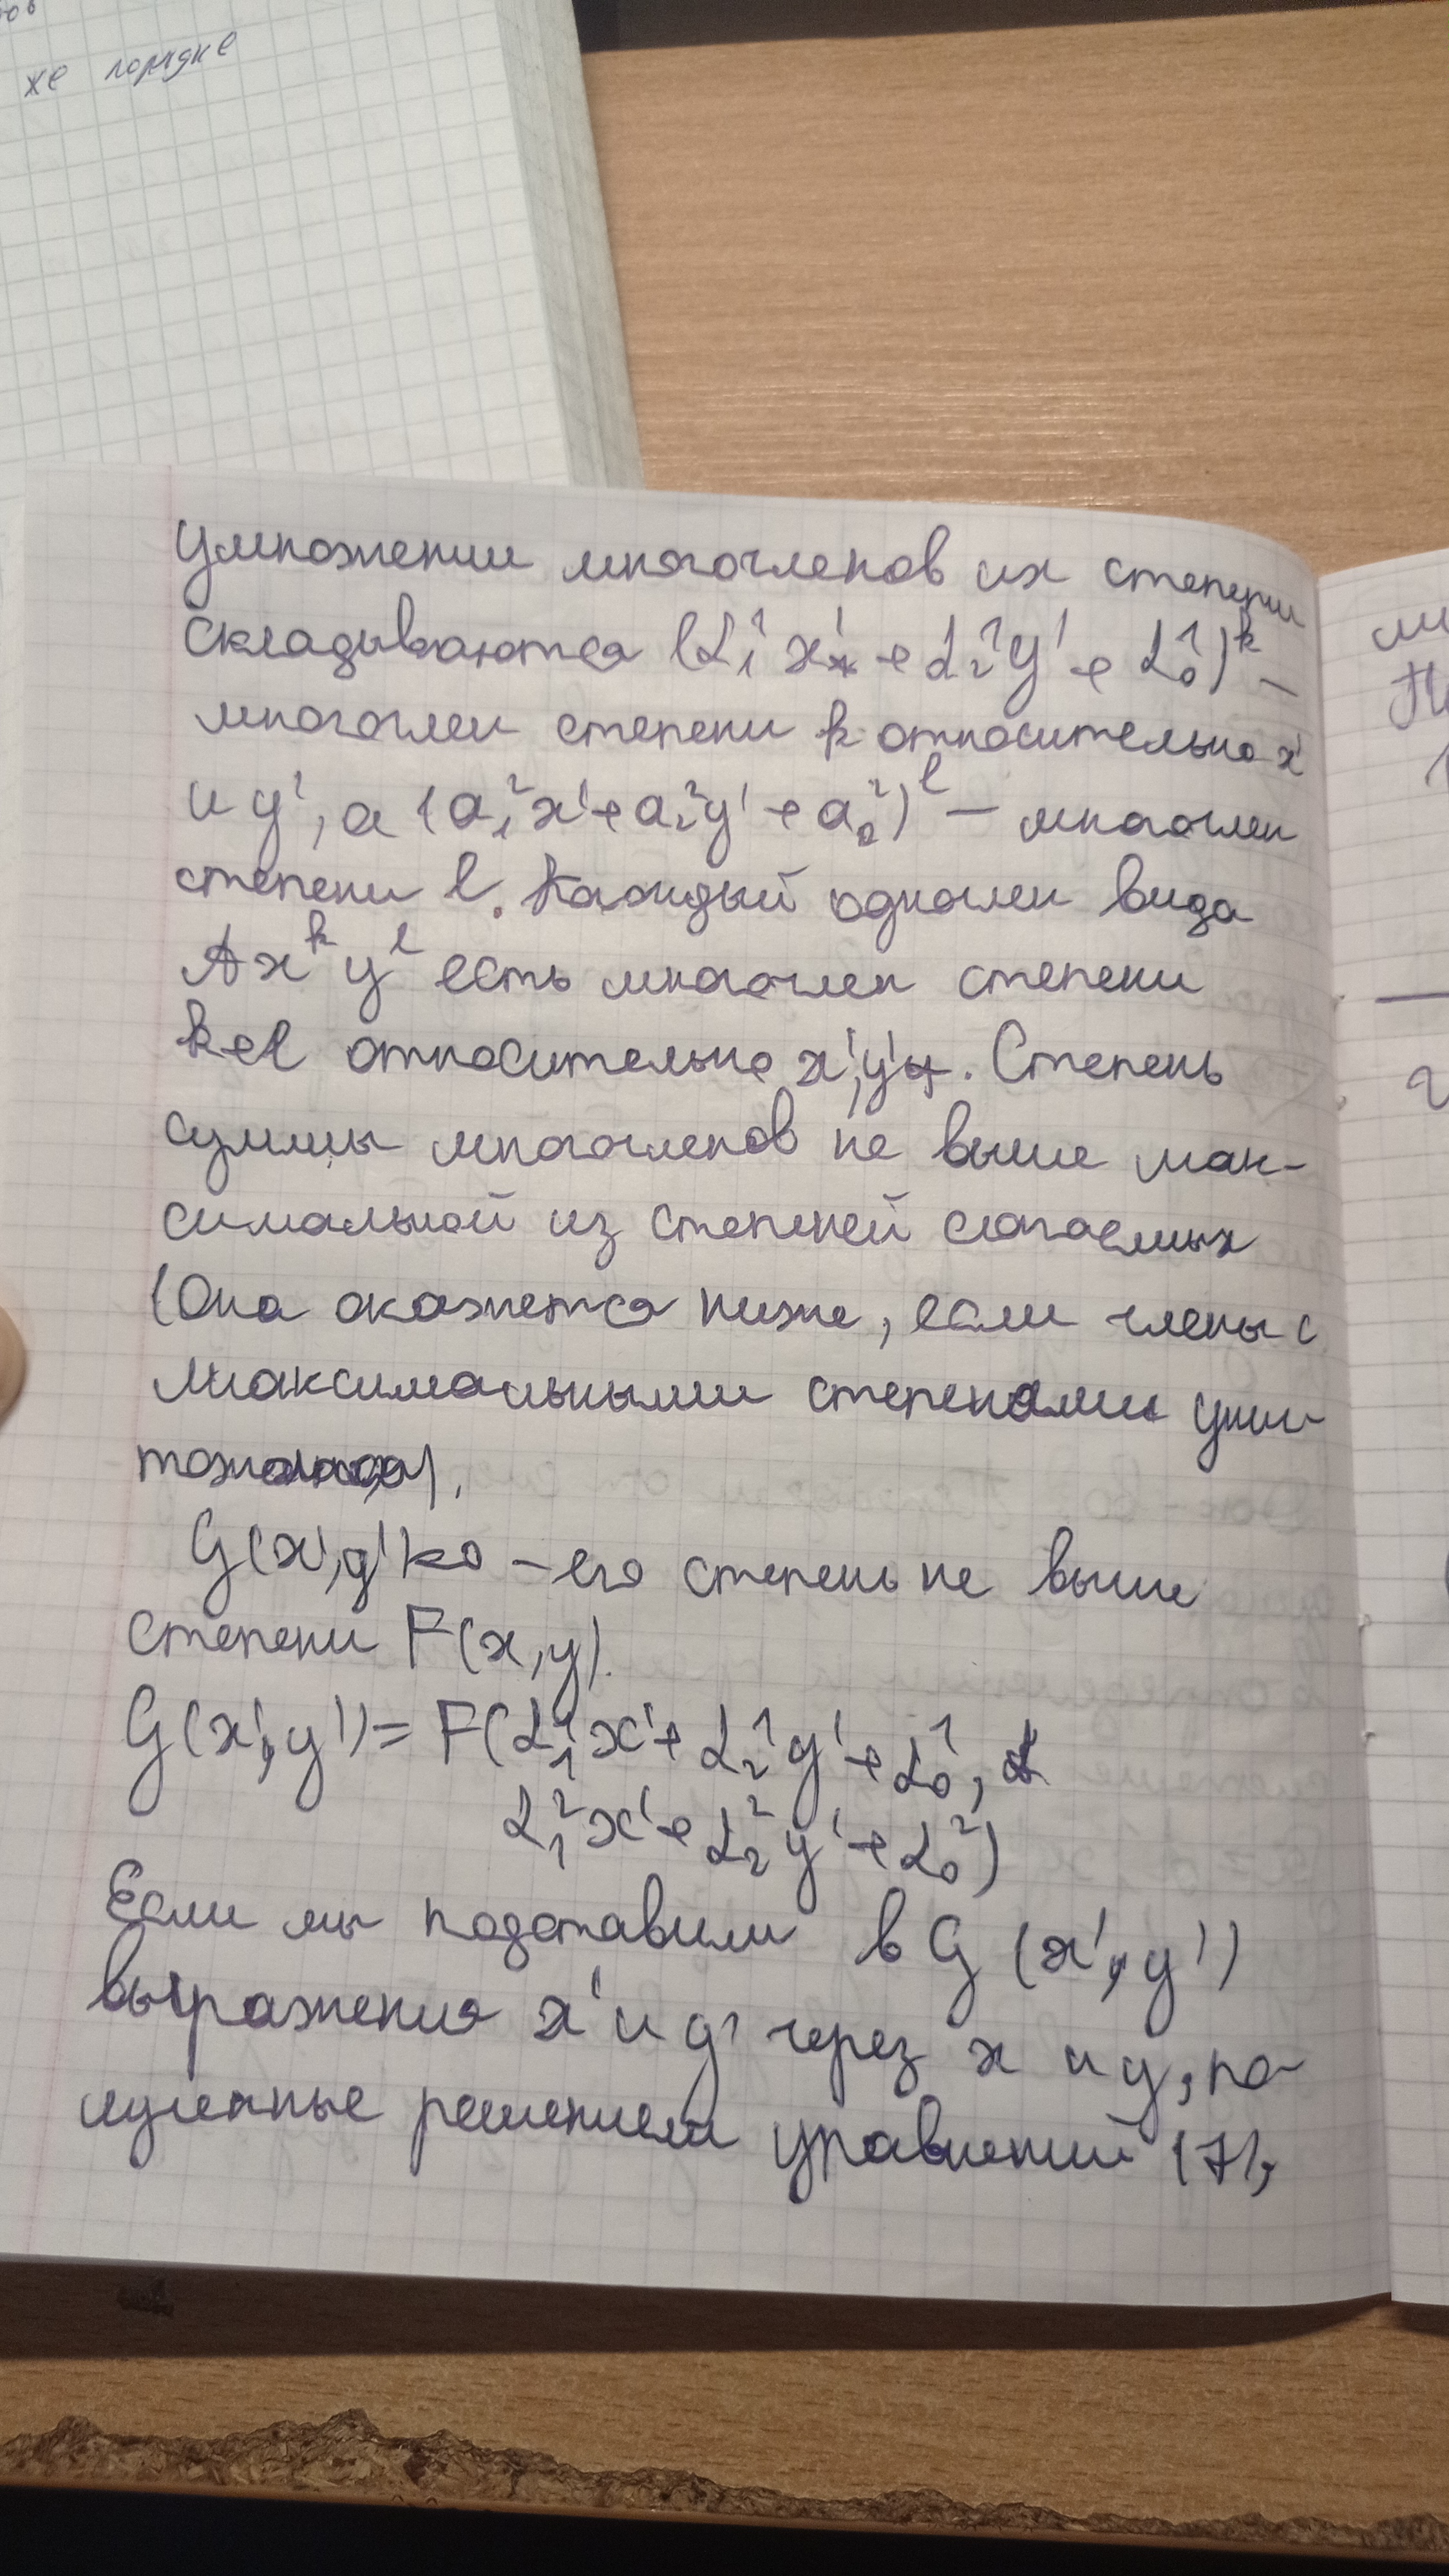 же порядке
умножении многочленов их степени
складываются (α₁¹x' + α₂¹y' + α₀¹)ᵏ –
многочлен степени k относительно x'
и y', а (a₁²x' + a₂²y' + a₀²)ˡ – многочлен
степени l. Каждый одночлен вида
Axᵏyˡ есть многочлен степени
k+l относительно x', y'. Степень
суммы многочленов не выше мак-
симальной из степеней слагаемых
(Она окажется ниже, если члены с
максимальными степенями уни-
G(x', y') – его степень не выше
степени F(x, y).
G(x', y') = F(α₁¹x' + α₂¹y' + α₀¹,
α₁²x' + α₂²y' + α₀²)
Если мы подставим в G (x', y')
выражения x' и y' через x и y, по-
лученные решением уравнений (7),